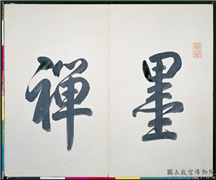 墨
禪
國立故宮博物院